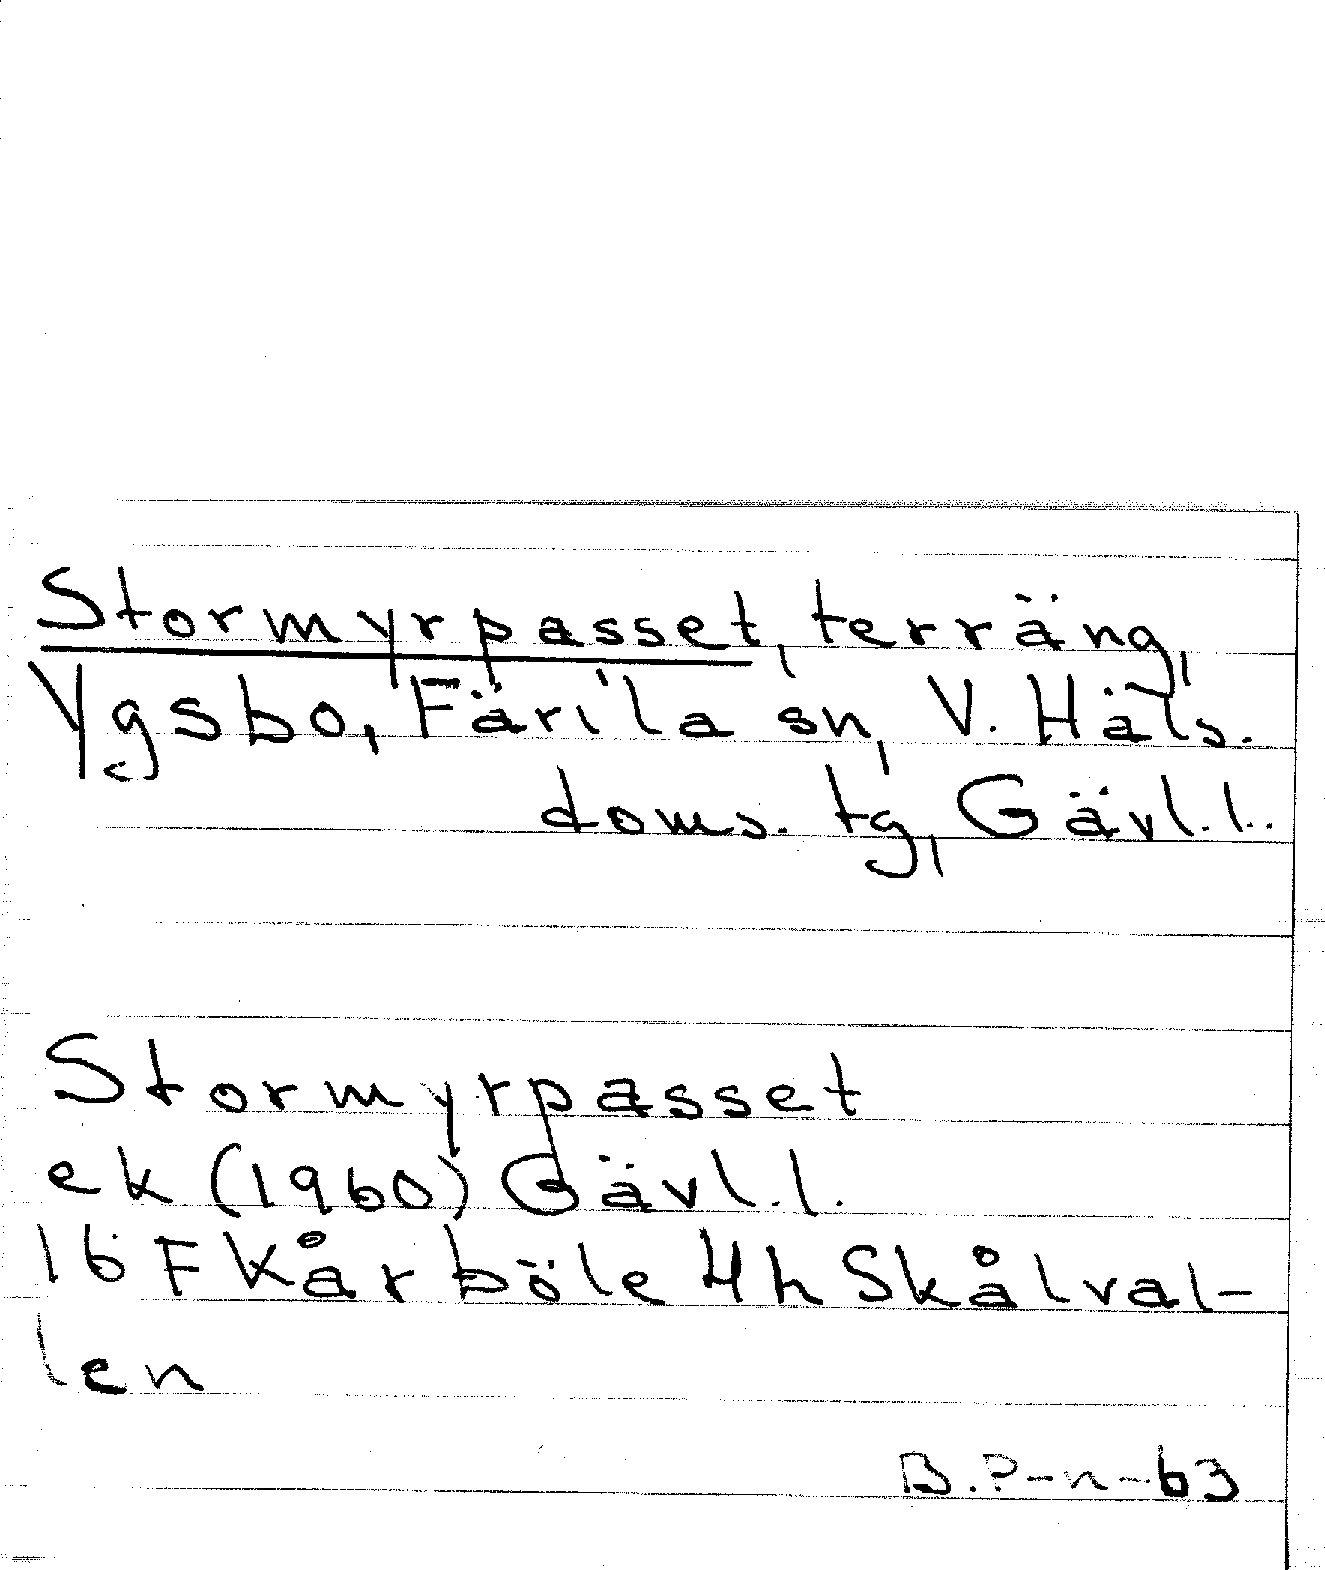 Stormyrpasset, terräng,
Ygsbo, Färila sn, V. Häls.
doms. tg, Gävl.l.
Stormyrpasset
ek (1960) Gävl.l.
16 F Kårböle 4h Skålval-
len
B.P-n-63